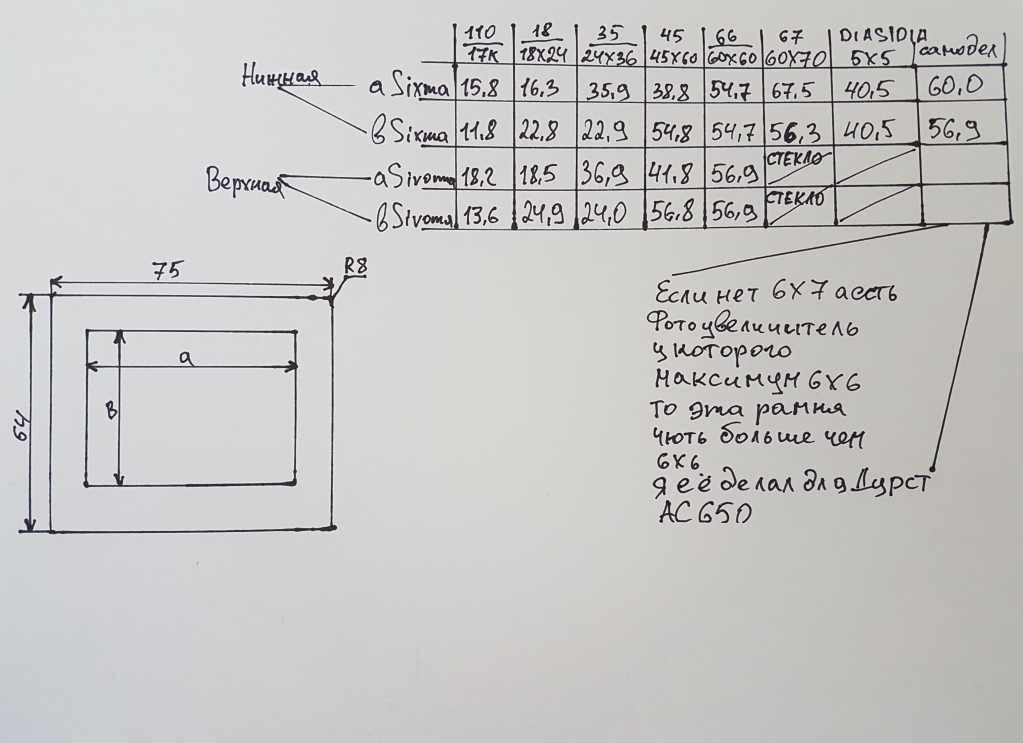 110 18 35 45 66 67 DIASIDIA самодел
17K 18X24 24X36 45X60 60X60 60X70 5X5
Нижная а Sixma 15,8 16,3 35,9 38,8 54,7 67,5 40,5 60,0
в Sixma 11,8 22,8 22,9 54,8 54,7 56,3 40,5 56,9
Верхная а Sivoma 18,2 18,5 36,9 41,8 56,9 СТЕКЛО
в Sivoma 13,6 24,9 24,0 56,8 56,9 СТЕКЛО
75 R8
64
а
в
Если нет 6X7 аесть
Фотоувеличитель
у которого
максимум 6X6
то эта рамня
чють больше чем
6X6
я её делал для Дурст
АС 650